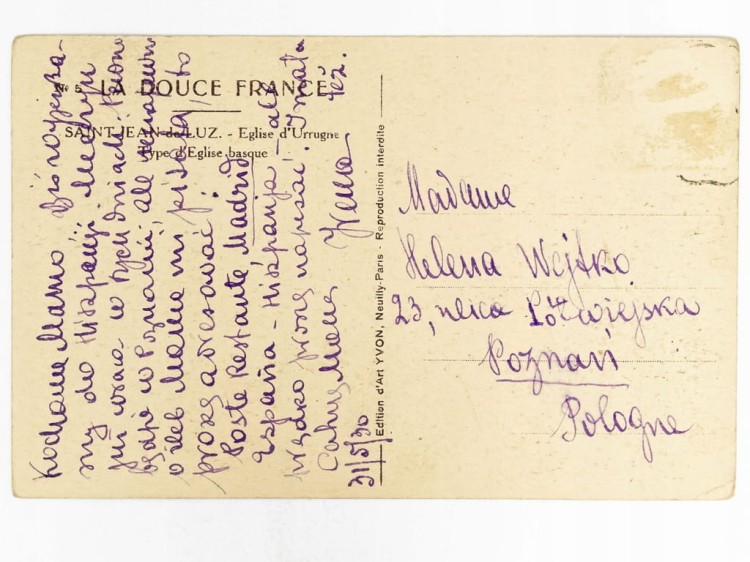 No 5. LA DOUCE FRANCE
SAINT-JEAN-de-LUZ. - Eglise d'Urrugne
Type d'Eglise basque
Edition d'Art YVON, Neuilly-Paris - Reproduction interdite
Kochana Mamo! Dziś wyjeżdża-
my do Hiszpanji.
już w tych dniach
będzie w Poznaniu, ale
o ileb Mama mi pisała, to
proszę adresować:
Poste Restante Madrid
España - Hiszpanja - ale
prędko proszę napisać.
Całuję Mamę Irena też.
31/5/30
Madame
Helena Wojtko
23, ulica Półwiejska
Poznań
Pologne